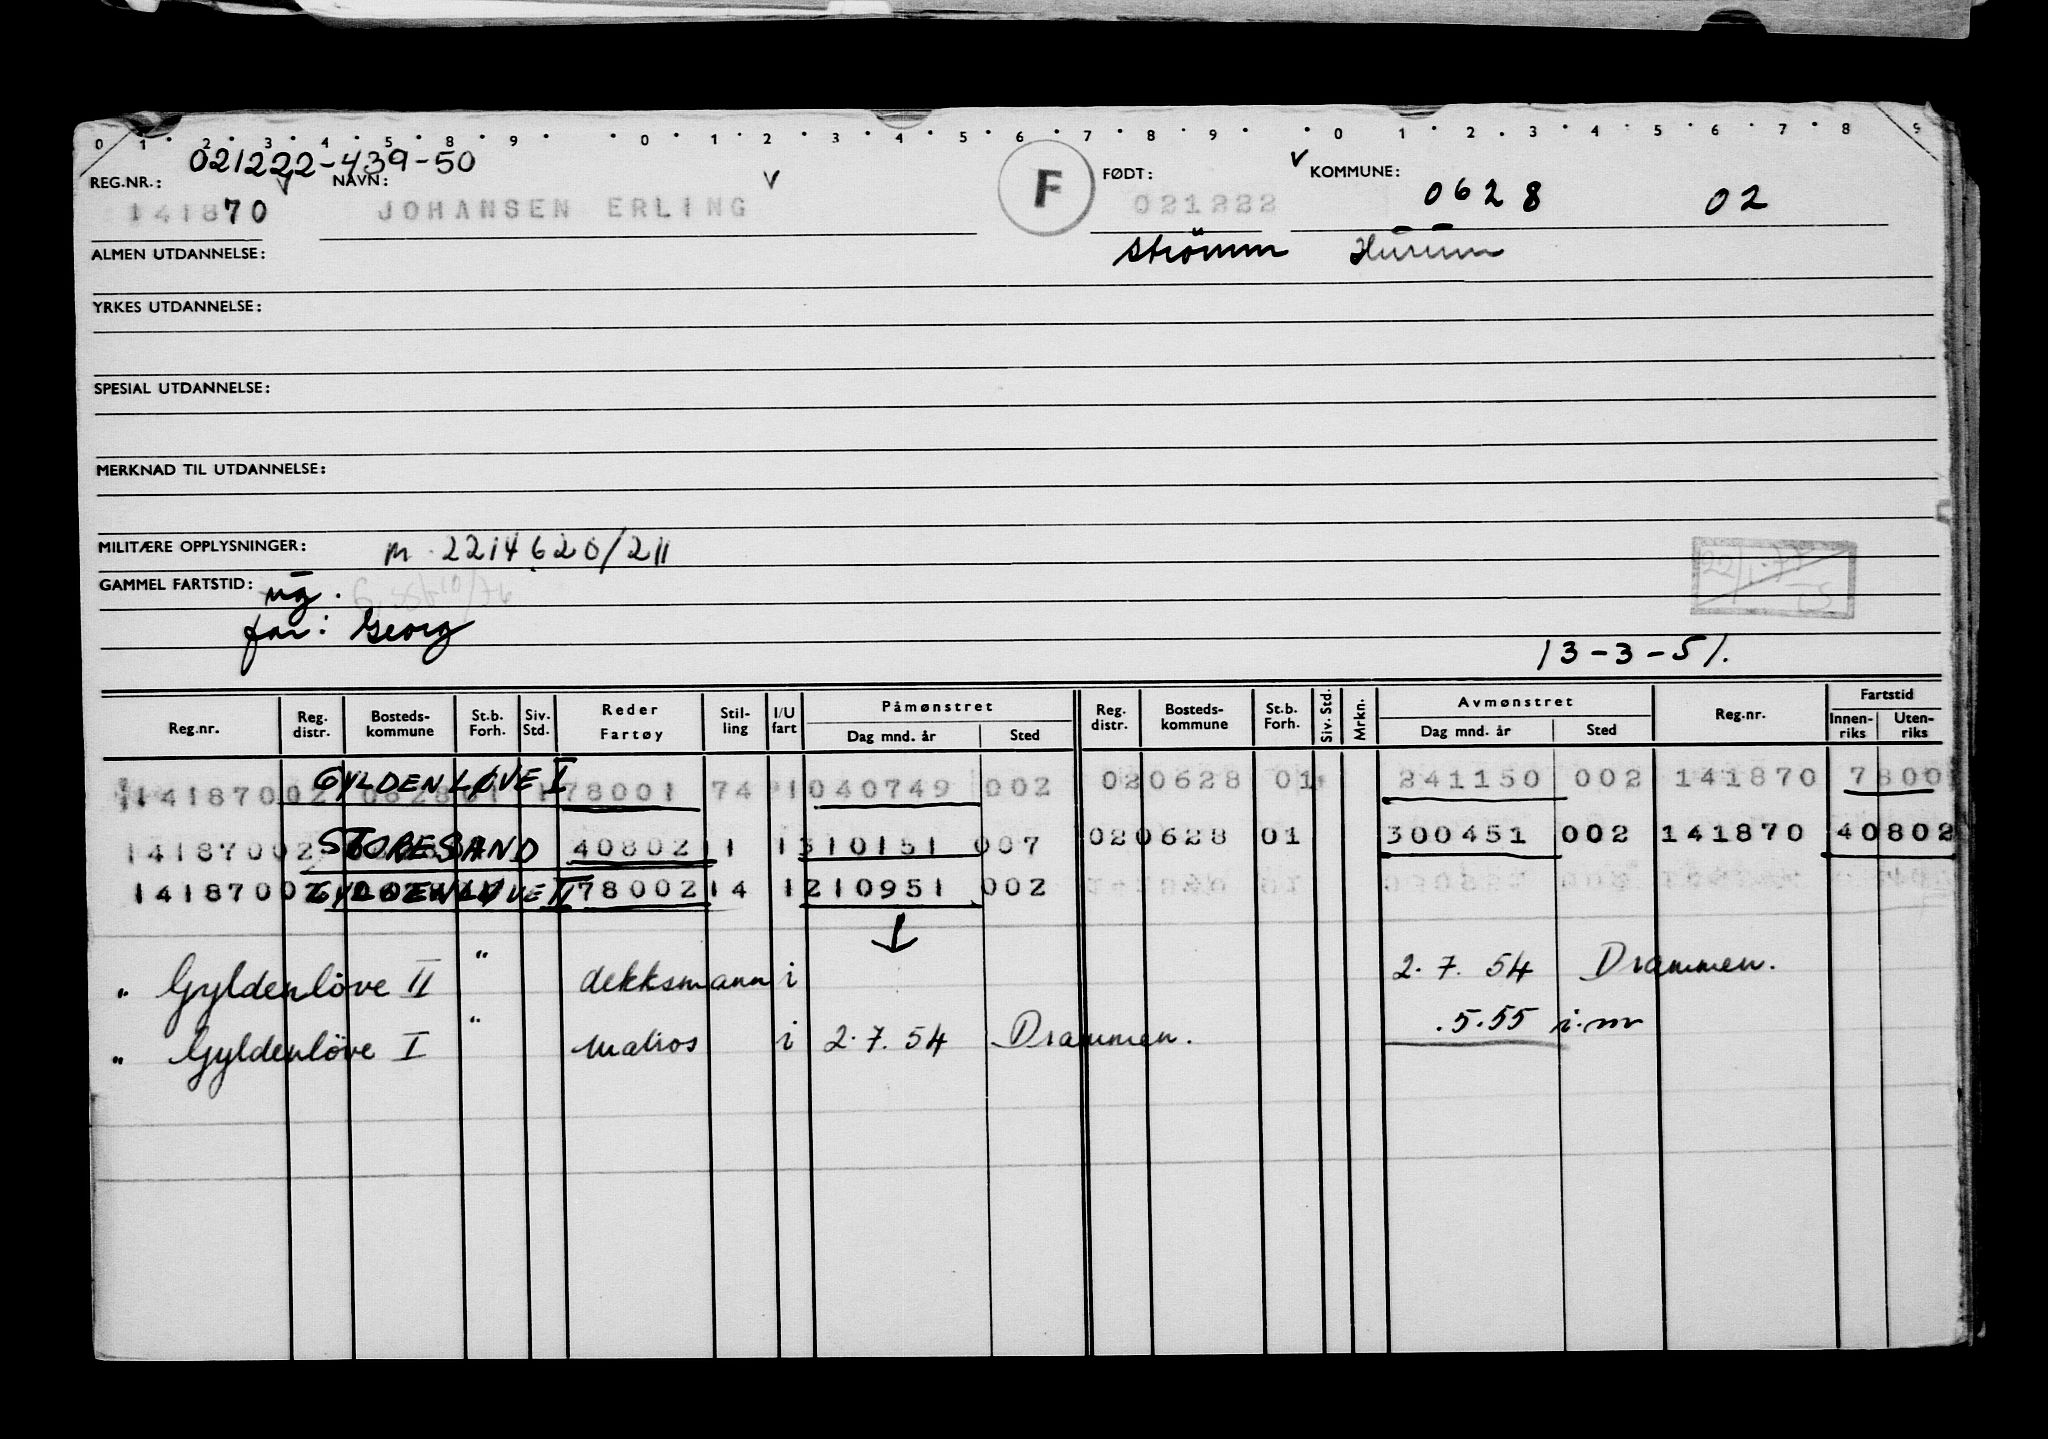 0 1 2 3 4 5 8 9 0 1 2 3 4 5 6 7 8 9 0 1 2 3 4 5 6 7 8 9
021222-439-50
REG.NR.: NAVN: F FØDT: KOMMUNE:
141870 JOHANSEN ERLING 021222 0628 02
Strömm Hurum
ALMEN UTDANNELSE:
YRKES UTDANNELSE:
SPESIAL UTDANNELSE:
MERKNAD TIL UTDANNELSE:
MILITÆRE OPPLYSNINGER: m. 2214620/211
GAMMEL FARTSTID: ug.
far: Georg
13-3-51.
Reg.nr. Reg. distr. Bosteds-kommune St.b. Forh. Siv. Std. Reder Fartøy Stil-ling I/U fart Påmønstret Dag mnd. år Sted Reg. distr. Bosteds-kommune St.b. Forh. Siv. Std. Mrkn. Avmønstret Dag mnd. år Sted Reg.nr. Fartstid Innen-riks Uten-riks
141870 02 GYLDENLØVE I 78001 74 1 040749 002 02 0628 01 241150 002 141870 7800
141870 02 STORESAND 40802 11 1 310151 007 02 0628 01 300451 002 141870 40802
141870 02 GYLDENLØVE II 78002 14 1 210951 002
" Gyldenlöve II " dekksmann i 2.7.54 Drammen.
" Gyldenlöve I " Matros i 2.7.54 Drammen. .5.55 i.m